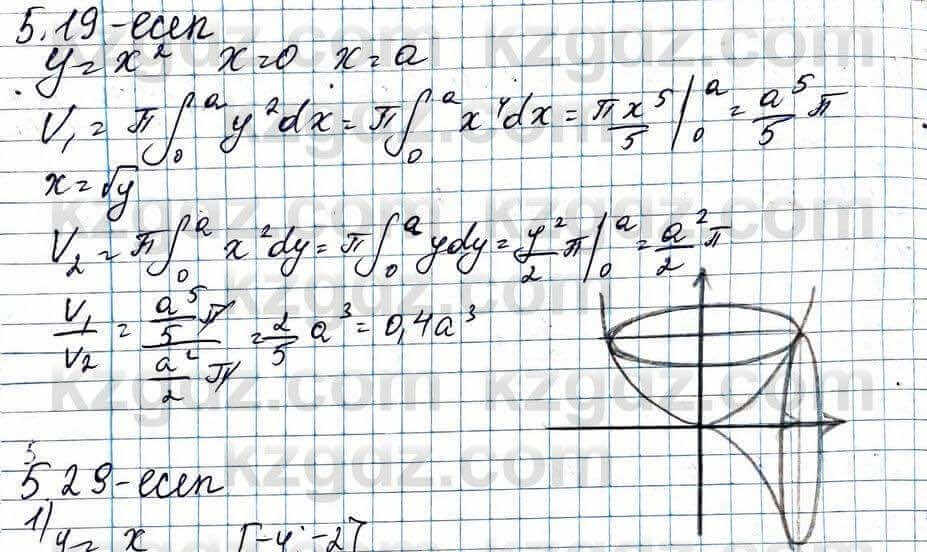 5.19-есеп
y = x² x=0 x=a
V₁ = π∫₀ᵃ y²dx = π∫₀ᵃ x⁴dx = πx⁵/5 |₀ᵃ = a⁵/5 π
x = √y
V₂ = π∫₀ᵃ x²dy = π∫₀ᵃ ydy = y²/2 π |₀ᵃ = a²/2 π
V₁/V₂ = (a⁵/5 π)/(a²/2 π) = 2/5 a³ = 0,4a³
5.29-есеп
1) y = x [-4; -2]
kzgdz.com kzgdz.com
kzgdz.com
kzgdz.com kzgdz.com
kzgdz.com
kzgdz.com kzgdz.com
kzgdz.com